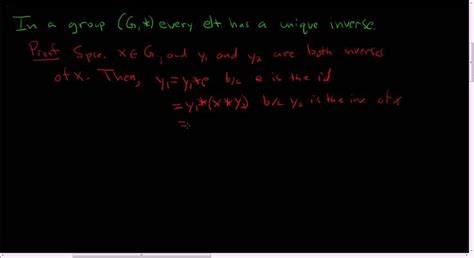 In a group (G,*) every elt has a unique inverse.
Proof Spse. x∈G, and y₁ and y₂ are both inverses
of x. Then, y₁ = y₁*e b/c e is the id
= y₁*(x*y₂) b/c y₂ is the inv of x
=